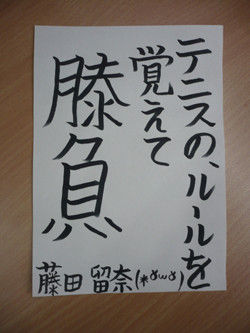 テニスの、ルールを
覚えて
勝負
藤田 留奈